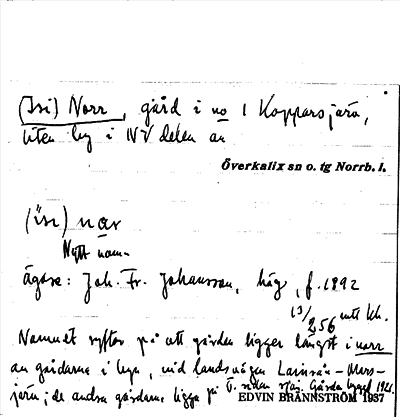 (Isi) Norr, gård i no 1 Kopparsjärv,
liten by i NV delen av
Överkalix sn o. tg Norrb. l.
(isi) nar
Nytt namn
ägare: Joh. Fr. Johansson, häg, f. 1892
13/2 56 mtl kh.
Namnet syftar på att gården ligger längst i norr
av gårdarna i byn, vid landsvägen Lansån – Mors-
järv; de andra gårdarna ligga på ö. sidan sjön. Gården byggd 1921.
EDVIN BRÄNNSTRÖM 1937